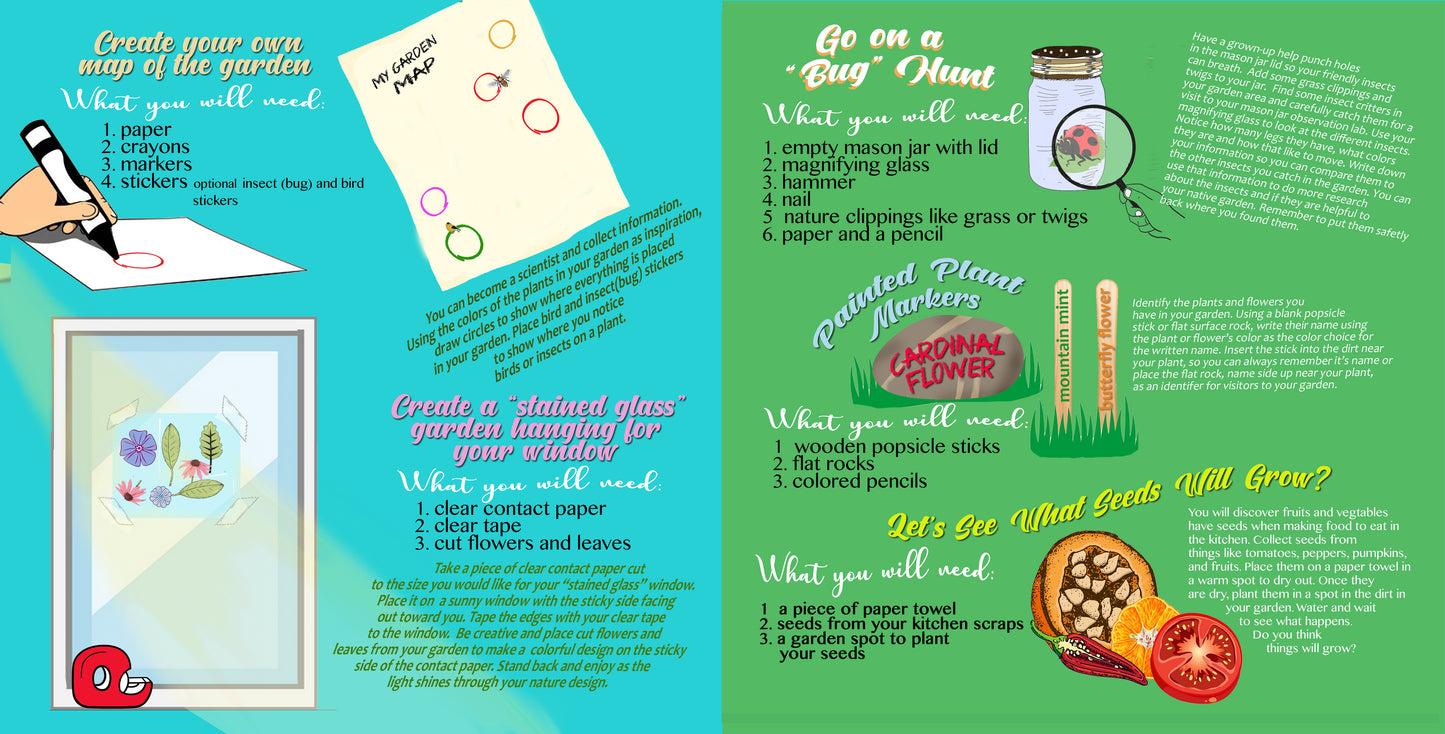 Create your own
map of the garden
What you will need:
1. paper
2. crayons
3. markers
4. stickers optional insect (bug) and bird
stickers
MY GARDEN
MAP
You can become a scientist and collect information.
Using the colors of the plants in your garden as inspiration,
draw circles to show where everything is placed
in your garden. Place bird and insect(bug) stickers
to show where you notice
birds or insects on a plant.
Create a "stained glass"
garden hanging for
your window
What you will need:
1. clear contact paper
2. clear tape
3. cut flowers and leaves
Take a piece of clear contact paper cut
to the size you would like for your "stained glass" window.
Place it on a sunny window with the sticky side facing
out toward you. Tape the edges with your clear tape
to the window. Be creative and place cut flowers and
leaves from your garden to make a colorful design on the sticky
side of the contact paper. Stand back and enjoy as the
light shines through your nature design.
Go on a
"Bug" Hunt
What you will need:
1. empty mason jar with lid
2. magnifying glass
3. hammer
4. nail
5 nature clippings like grass or twigs
6. paper and a pencil
Have a grown-up help punch holes
in the mason jar lid so your friendly insects
can breath. Add some grass clippings and
twigs to your jar. Find some insect critters in
your garden area and carefully catch them for a
visit to your mason jar observation lab. Use your
magnifying glass to look at the different insects.
Notice how many legs they have, what colors
they are and how that like to move. Write down
your information so you can compare them to
the other insects you catch in the garden. You can
use that information to do more research
about the insects and if they are helpful to
your native garden. Remember to put them safetly
back where you found them.
Painted Plant
Markers
CARDINAL
FLOWER
mountain mint
butterfly flower
Identify the plants and flowers you
have in your garden. Using a blank popsicle
stick or flat surface rock, write their name using
the plant or flower's color as the color choice for
the written name. Insert the stick into the dirt near
your plant, so you can always remember it's name or
place the flat rock, name side up near your plant,
as an identifer for visitors to your garden.
What you will need:
1 wooden popsicle sticks
2. flat rocks
3. colored pencils
Let's See What Seeds Will Grow?
What you will need:
1 a piece of paper towel
2. seeds from your kitchen scraps
3. a garden spot to plant
your seeds
You will discover fruits and vegtables
have seeds when making food to eat in
the kitchen. Collect seeds from
things like tomatoes, peppers, pumpkins,
and fruits. Place them on a paper towel in
a warm spot to dry out. Once they
are dry, plant them in a spot in the dirt in
your garden. Water and wait
to see what happens.
Do you think
things will grow?